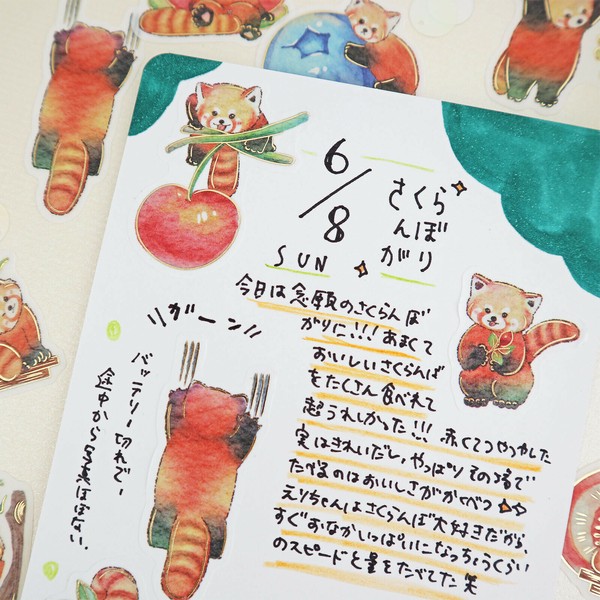 6/8
SUN
さくら
んぼ
がり
今日は念願のさくらんぼ
がりに!!!あまくて
おいしいさくらんぼ
をたくさん食べれて
超うれしかった!!!赤くてつやつやした
実はきれいだし、やっぱりその場で
たべるのはおいしさがかくべつ
えりちゃんはさくらんぼ大好きだから、
すぐおなかいっぱいになっちゃうくらい
のスピードと量をたべてた笑
ガーン
バッテリー切れで
途中から写真ほぼない。